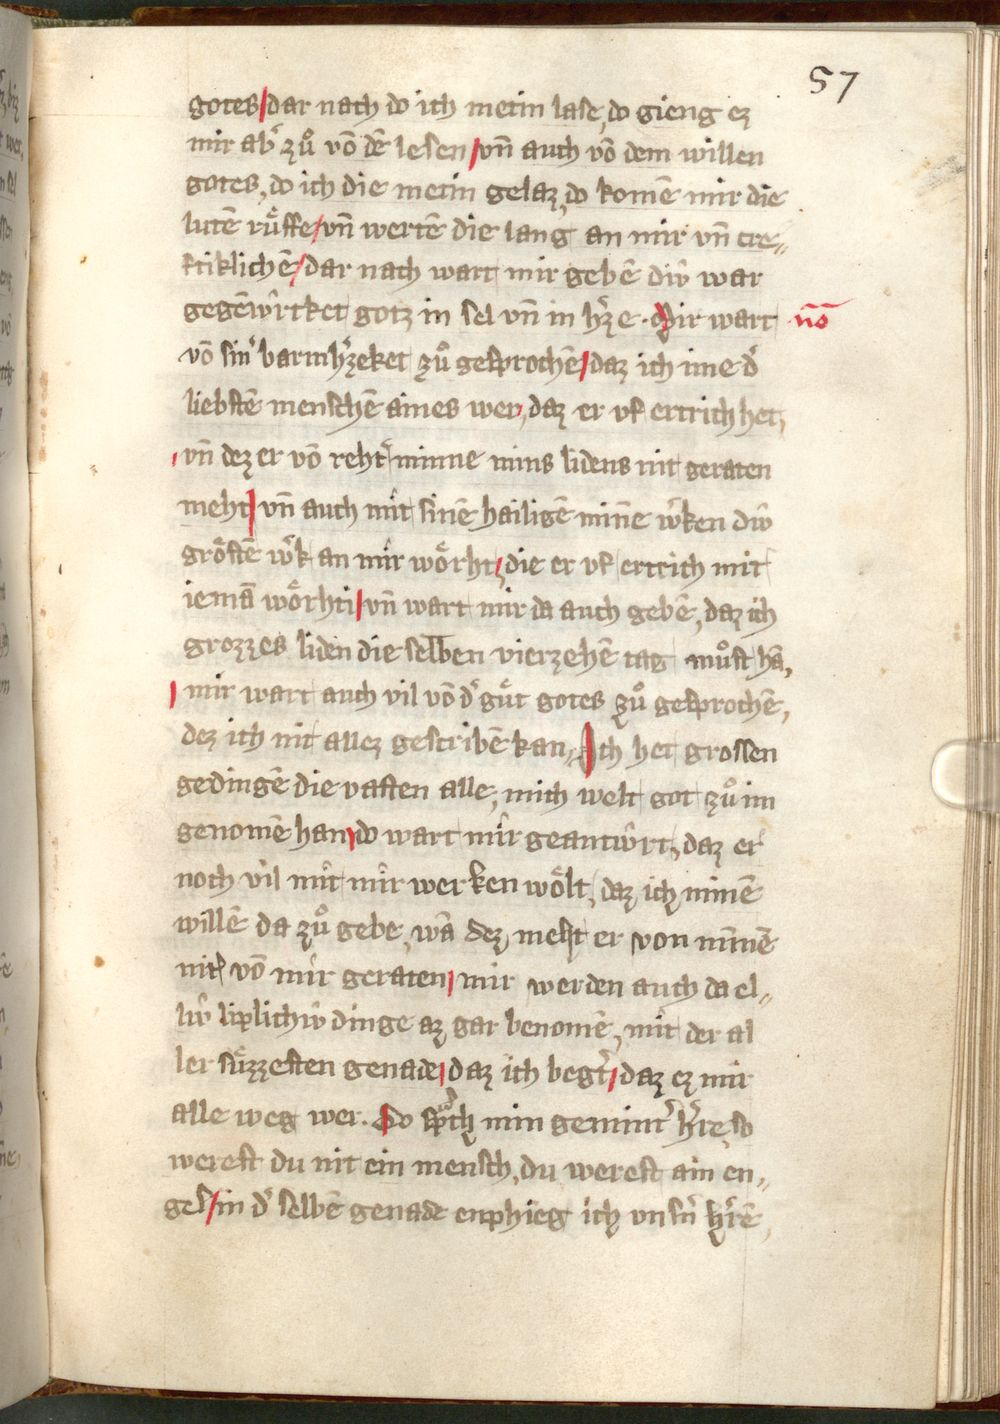 57
gotes/dar nach do ich metin lase, do gieng ez
mir ab͛ zuͦ vō dē lesen/vn̄ auch vō dem willen
gotes, do ich die metin gelaz, do komē mir die
lutē ruͤffe/vn̄ wertē die lang an mir vn̄ cre⸗
ftiklichē/dar nach wart mir gebē diŵ war
gegēwv̂rtket gotz in sel vn̄ in h͛ze. Mir wart no͞
vō sin͛ barmh͛zeket zuͦ gesprochē/daz ich ime d͛
liebstē menschē aines wer, daz er vf ertrich het,
/vn̄ dez er vō reht͛ minne mins lidens nit geraten
meht/vn̄ auch mit sinē hailigē minē ŵken diŵ
groͤstē ŵk an mir woͤrht, die er vf ertrich mit
iemā woͤrhti/vn̄ wart mir da auch gebē, daz ich
grozzes liden die selben vierzehē tag muͦst hā,
/mir wart auch vil vō d͛ guͤt gotes zuͦ gesprochē,
dez ich nit allez gescribē kan, Ich het grossen
gedingē die vasten alle, mich welt got zuͦ im
genomē han/do wart mir geantŵrt, daz er
noch vil mit mir werken woͤlt, daz ich minē
willē da zuͦ gebe, wā dez meht er von minnē
nit vō mir geraten/mir werden auch da el⸗
liŵ liplichiŵ dinge az gar benomē, mit der al
ler suͤzzesten genade/daz ich begt͛/daz ez mir
alle weg wer. Do sp͛ch min gemint͛ h͛re, so
werest du nit ein mensch, du werest ain en⸗
gel/in d͛ selbē genade enphieg ich vnsn͛ h͛rē,